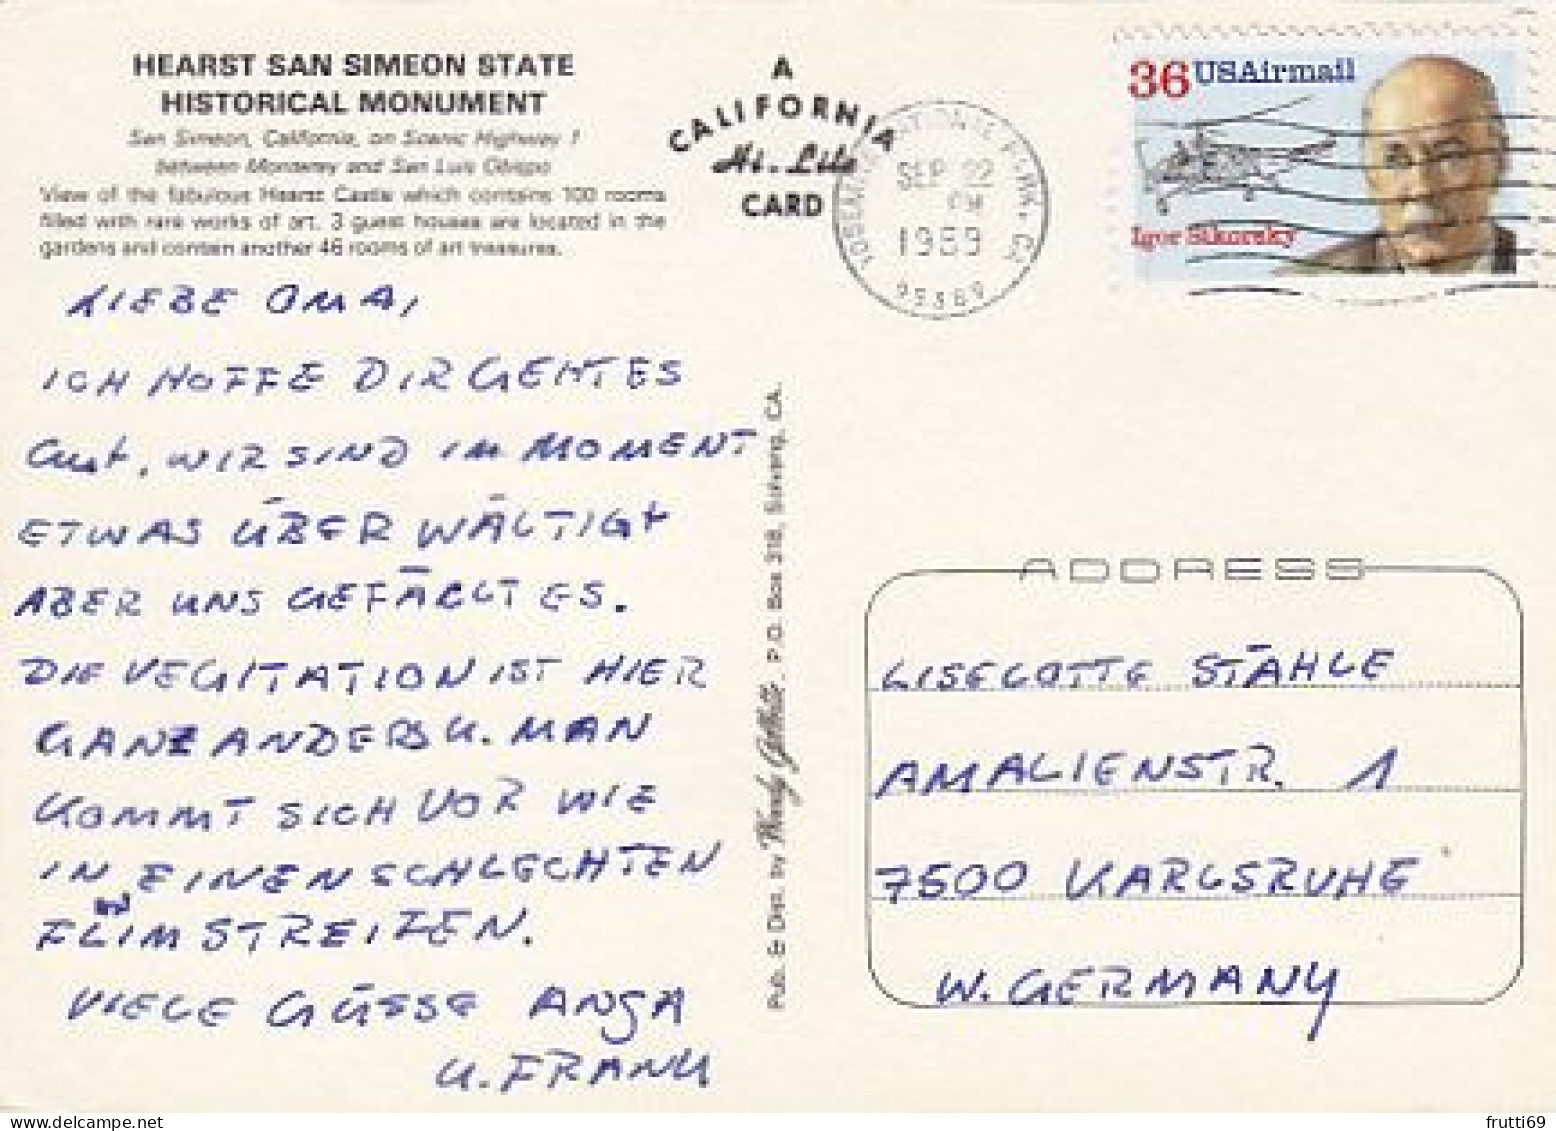 HEARST SAN SIMEON STATE
HISTORICAL MONUMENT
San Simeon, California, on Scenic Highway 1
between Monterey and San Luis Obispo
View of the fabulous Hearst Castle which contains 100 rooms
filled with rare works of art. 3 guest houses are located in the
gardens and contain another 46 rooms of art treasures.
A
CALIFORNIA
Hi-Lite
CARD
YOSEMITE NATIONAL PARK, CA
SEP 22
PM
1989
95389
36 USAirmail
Igor Sikorsky
LIEBE OMA,
ICH HOFFE DIR GEHT ES
GUT. WIR SIND IM MOMENT
ETWAS ÜBER WÄLTIGT
ABER UNS GEFÄLLT ES.
DIE VEGITATION IST HIER
GANZ ANDERS U. MAN
KOMMT SICH VOR WIE
IN EINEN SCHLECHTEN
FLIM STREIFEN.
VIELE GÜSSE ANJA
U. FRANK
Pub. & Dist. by P.O. Box 318, Solvang, CA.
ADDRESS
LISELOTTE STÄHLE
AMALIENSTR. 1
7500 KARLSRUHE
W. GERMANY
frutti69